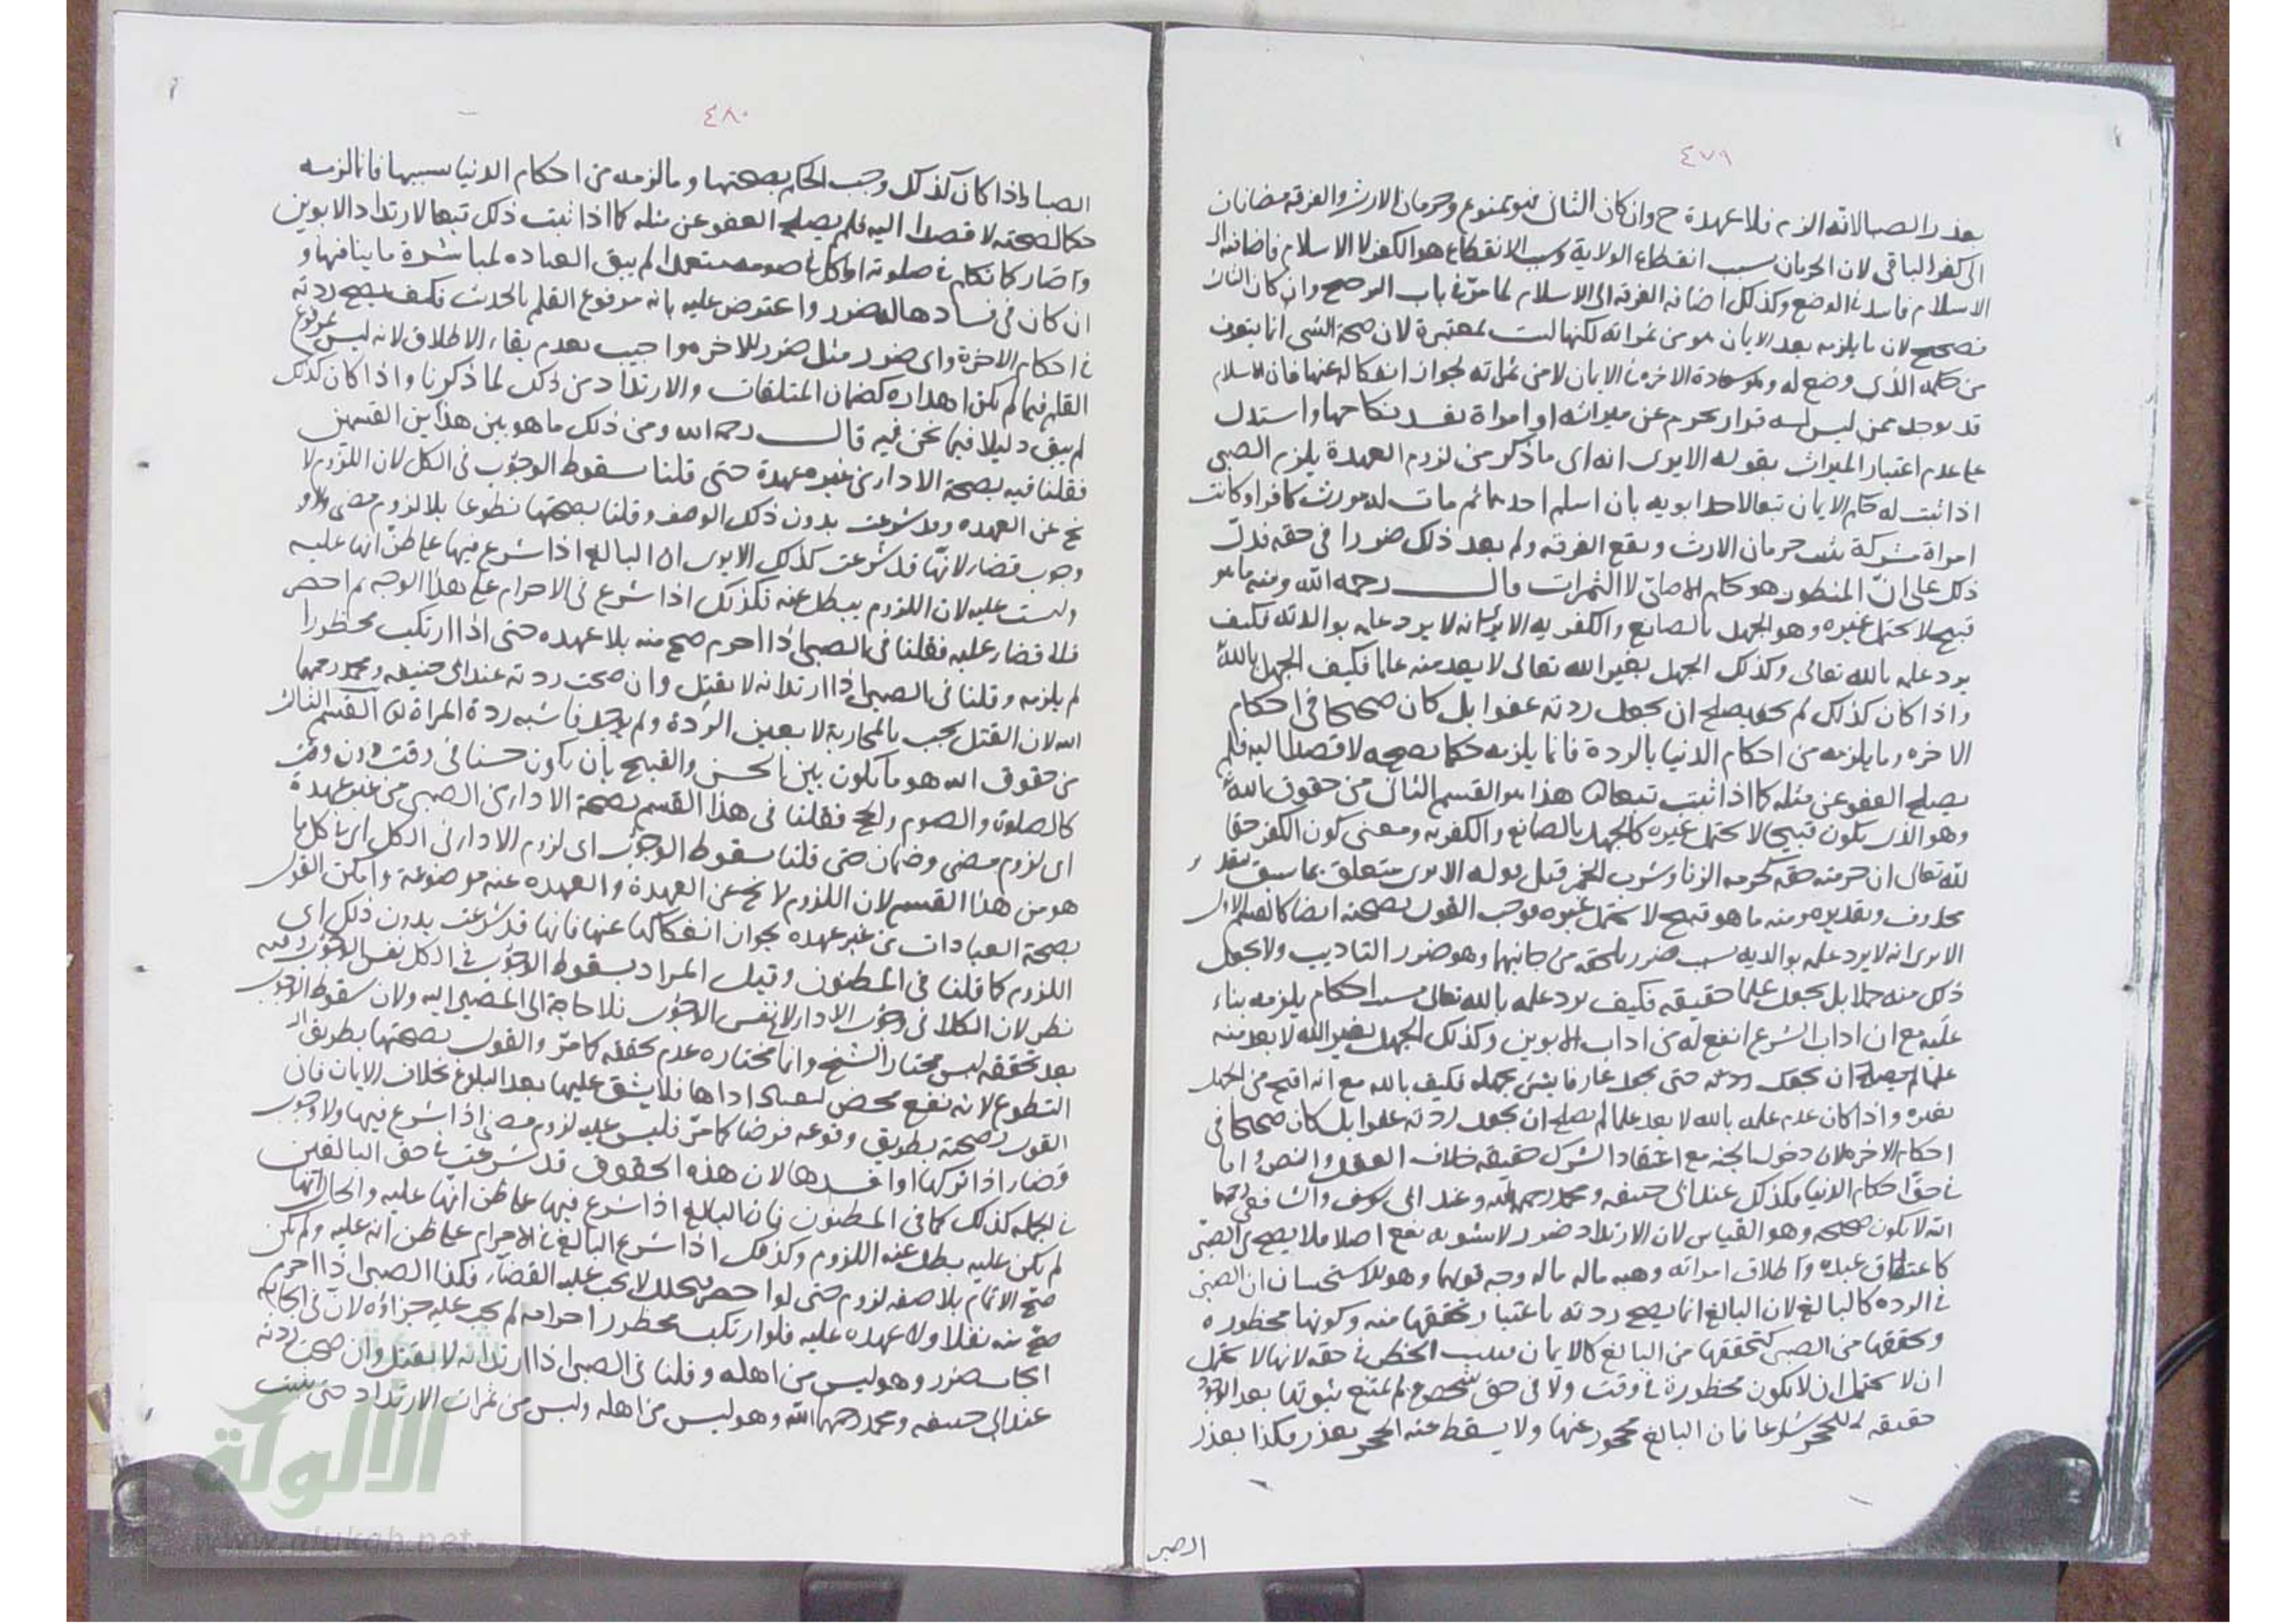 ٤٧٩
بعذر الصبا لانه الزم فلا عهدة ح وان كان الثاني فهو ممنوع وحرمان الارث والفرقة مضافان
الى كفر الباقي لان الحرمان بسبب انقطاع الولاية وسبب الانقطاع هو الكفر لا الاسلام فاضافته الى
الاسلام فاسد في الوضع وكذلك اضافة الفرقة الى الاسلام لما مر في باب الترجيح وان كان الثالث
فصحيح لان ما يلزمه بعد الايمان هو من ثمراته لكنها ليست بمعتبرة لان صحة الشي انما يتعرف
من حكمه الذي وضع له وهو سعادة الاخرة في الايمان لا من ثمراته لجواز انفكاكه عنها فان الاسلام
قد يوجد ممن ليس له قرابة يحرم عن ميراثه او امراة يفسد نكاحها واستدل
على عدم اعتبار الميراث بقوله الا يرى انه اى ما ذكر من لزوم العهدة يلزم الصبي
اذا ثبت له حكم الايمان تبعا لاحد ابويه بان اسلم احدهما ثم مات له مورث كافر او كانت
امراة مشركة يثبت حرمان الارث ويقع الفرقة ولم يعد ذلك ضررا في حقه فدل
ذلك على ان المنظور هو حكم الاصلي لا الثمرات قال رحمه الله ومنه ما هو
قبيح لا يحتمل غيره وهو الجهل بالصانع والكفر به الا يرى انه لا يرد علمه بوالديه فكيف
يرد علمه بالله تعالى وكذلك الجهل بغير الله تعالى لا يعد منه علما فكيف الجهل بالله
واذا كان كذلك لم يصلح ان يجعل ردته عفوا بل كان صحيحا في احكام
الاخره وما يلزمه من احكام الدنيا بالردة فانما يلزمه حكما لصحته لا قصدا اليه فلم
يصلح العفو عن مثله كما اذا ثبت تبعا هذا هو القسم الثاني من حقوق الله
وهو الذي يكون قبيحا لا يحتمل غيره كالجهل بالصانع والكفر به ومعنى كون الكفر حقا
لله تعالى ان حرمته حقه كحرمة الزنا وشرب الخمر قيل قوله الا يرى متعلق بما سبق
محذوف وتقديره ومنه ما هو قبيح لا يحتمل غيره فوجب القول بصحته ايضا كالقسم الاول
الا يرى انه لا يرد علمه بوالديه بسبب ضرر يلحقه من جانبهما وهو ضرر التاديب ولا يجعل
ذلك منه جهلا بل يجعل علما حقيقة فكيف يرد علمه بالله تعالى بسبب احكام يلزمه بناء
عليه مع ان اداب الشرع انفع له من اداب الابوين وكذلك الجهل بغير الله لا يعد منه
علما لم يصلح ان يجعل ردته حتى يجعل عارفا بشئ بجهله فكيف بالله مع انه اقبح من الجهل
بغيره واذا كان عدم علمه بالله لا يعد علما لم يصلح ان يجعل ردته عفوا بل كان صحيحا في
احكام الاخرة لان دخول الجنة مع اعتقاد الشرك حقيقة خلاف العقل والنص واما
في حق احكام الدنيا فكذلك عند ابي حنيفه ومحمد رحمهما الله وعند ابي يوسف والشافعي رحمهما
الله لا يكون صحيحه وهو القياس لان الارتداد ضرر لا يشوبه نفع اصلا فلا يصح من الصبي
كاعتاق عبده وطلاق امراته وهبه ماله ماله وجه قولهما وهو الاستحسان ان الصبي
في الرده كالبالغ لان البالغ انما يصح ردته باعتبار تحققها منه وكونها محظوره
وتحققها من الصبي كتحققها من البالغ كالايمان بسبب الحظر في حقه لانها لا يحتمل
ان لا يحتمل ان لا يكون محظورة في وقت ولا في حق شخص لم يمتنع ثبوتها بعد الوجود
حقيقه للحجر شرعا فان البالغ محجور عنها ولا يسقط عنه الحجر بعذر فكذا بعذر
الصبي
٤٨٠
الصبا واذا كان كذلك وجب الحكم بصحتها وما لزمه من احكام الدنيا بسببها فانما لزمه
حكما لصحته لا قصدا اليه فلم يصلح العفو عن مثله كما اذا ثبت ذلك تبعا لارتداد الابوين
وصار كما تكلم في صلوته او اكل في صومه متعمدا لم يبق العباده لمباشرة ما ينافيها و
ان كان في فسادها ضرر واعترض عليه بانه مرفوع القلم بالحديث فكيف يصح ردته
في احكام الاخرة واى ضرر مثل ضرر الاخره واجيب بعدم بقاء الاطلاق لانه ليس بمرفوع
القلم فيما لم يكن اهداره كضمان المتلفات والارتداد من ذلك لما ذكرنا واذا كان كذلك
لم يبق دليلا فيما نحن فيه قال رحمه الله ومن ذلك ما هو بين هذين القسمين
فقلنا فيه بصحة الادا من غير عهدة حتى قلنا بسقوط الوجوب في الكل لان اللزوم لا
يخ عن العهده وقد شرعت بدون ذلك الوصف وقلنا بصحتها تطوعا بلا لزوم مضى ولا
وجوب قضاء لانها قد شرعت كذلك الا يرى ان البالغ اذا شرع فيها على ظن انها عليه
وليست عليه لان اللزوم يبطل عنه فكذلك اذا شرع في الاحرام على هذا الوجه ثم احصر
فلا قضاء عليه فقلنا في الصبي اذا احرم صح منه بلا عهده حتى اذا ارتكب محظورا
لم يلزمه وقلنا في الصبي اذا ارتد انه لا يقتل وان صحت ردته عند ابي حنيفه ومحمد رحمهما
الله لان القتل يجب بالمحاربة لا بعين الردة ولم يوجد فاشبه ردة المراة القسم الثالث
من حقوق الله هو ما يكون بين الحسن والقبيح بان يكون حسنا في وقت دون وقت
كالصلوة والصوم والحج فقلنا في هذا القسم بصحة الادا من الصبي من غير عهدة
اى لزوم مضى وضمان حتى قلنا بسقوط الوجوب اى لزوم الادا في الكل اى في كل ما
هو من هذا القسم لان اللزوم لا يخ عن العهدة والعهده عنه موضوعة وامكن القول
بصحة العبادات من غير عهده لجواز انفكاكها عنها فانها قد شرعت بدون ذلك اى
اللزوم كما قلنا في المظنون وقيل المراد بسقوط الوجوب في الكل نفس الوجوب وفيه
نظر لان الكلام في وجوب الادا لا نفس الوجوب فلا حاجة الى المصير اليه ولان سقوط الوجوب
بعد تحققه ليس مختار الشيخ وانما مختاره عدم تحققه كما مر والقول بصحتها بطريق
التطوع لانه نفع محض لعباد اداها فلا يشق عليها بعد البلوغ بخلاف الايمان فان
القول بصحته بطريق وقوعه فرضا كما مر فليس عليه لزوم مضى اذا شرع فيها ولا وجوب
قضاء اذا تركها او افسدها لان هذه الحقوق قد شرعت في حق البالغين
في الجمله كذلك كما في المظنون فان البالغ اذا شرع فيها على ظن انها عليه والحال انها
لم يكن عليه يبطل عنه اللزوم وكذلك اذا شرع البالغ في الاحرام على ظن انه عليه ولم يكن
صح الاتمام بلا صفه لزوم حتى لو احصر فتحلل لا يجب عليه القضاء فكذا الصبي اذا احرم
صح منه نفلا ولا عهده عليه فلو ارتكب محظور احرامه لم يجب عليه جزاؤه لان في ايجابه
ايجاب ضرر وهو ليس من اهله وقلنا في الصبي اذا ارتد انه لا يقتل وان صحت ردته
عند ابي حنيفه ومحمد رحمهما الله وهو ليس من اهله وليس من ثمرات الارتداد حتى يثبت
شبكة
الألوكة
www.alukah.net